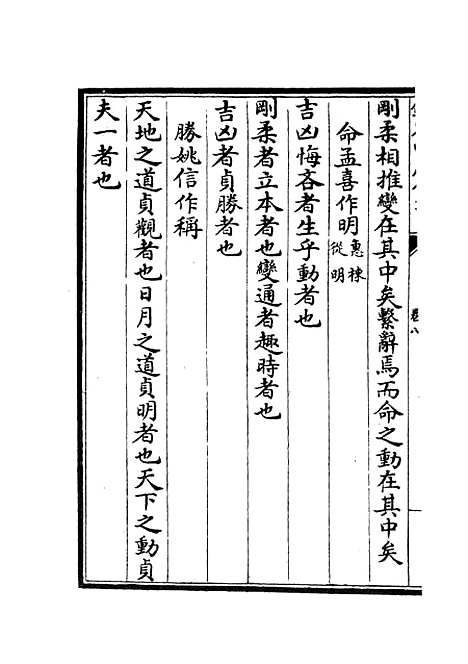 剛柔相推變在其中矣繫辭焉而命之動在其中矣
命孟喜作明惠棟從明
吉凶悔吝者生乎動者也
剛柔者立本者也變通者趣時者也
吉凶者貞勝者也
勝姚信作稱
天地之道貞觀者也日月之道貞明者也天下之動貞
夫一者也
卷八